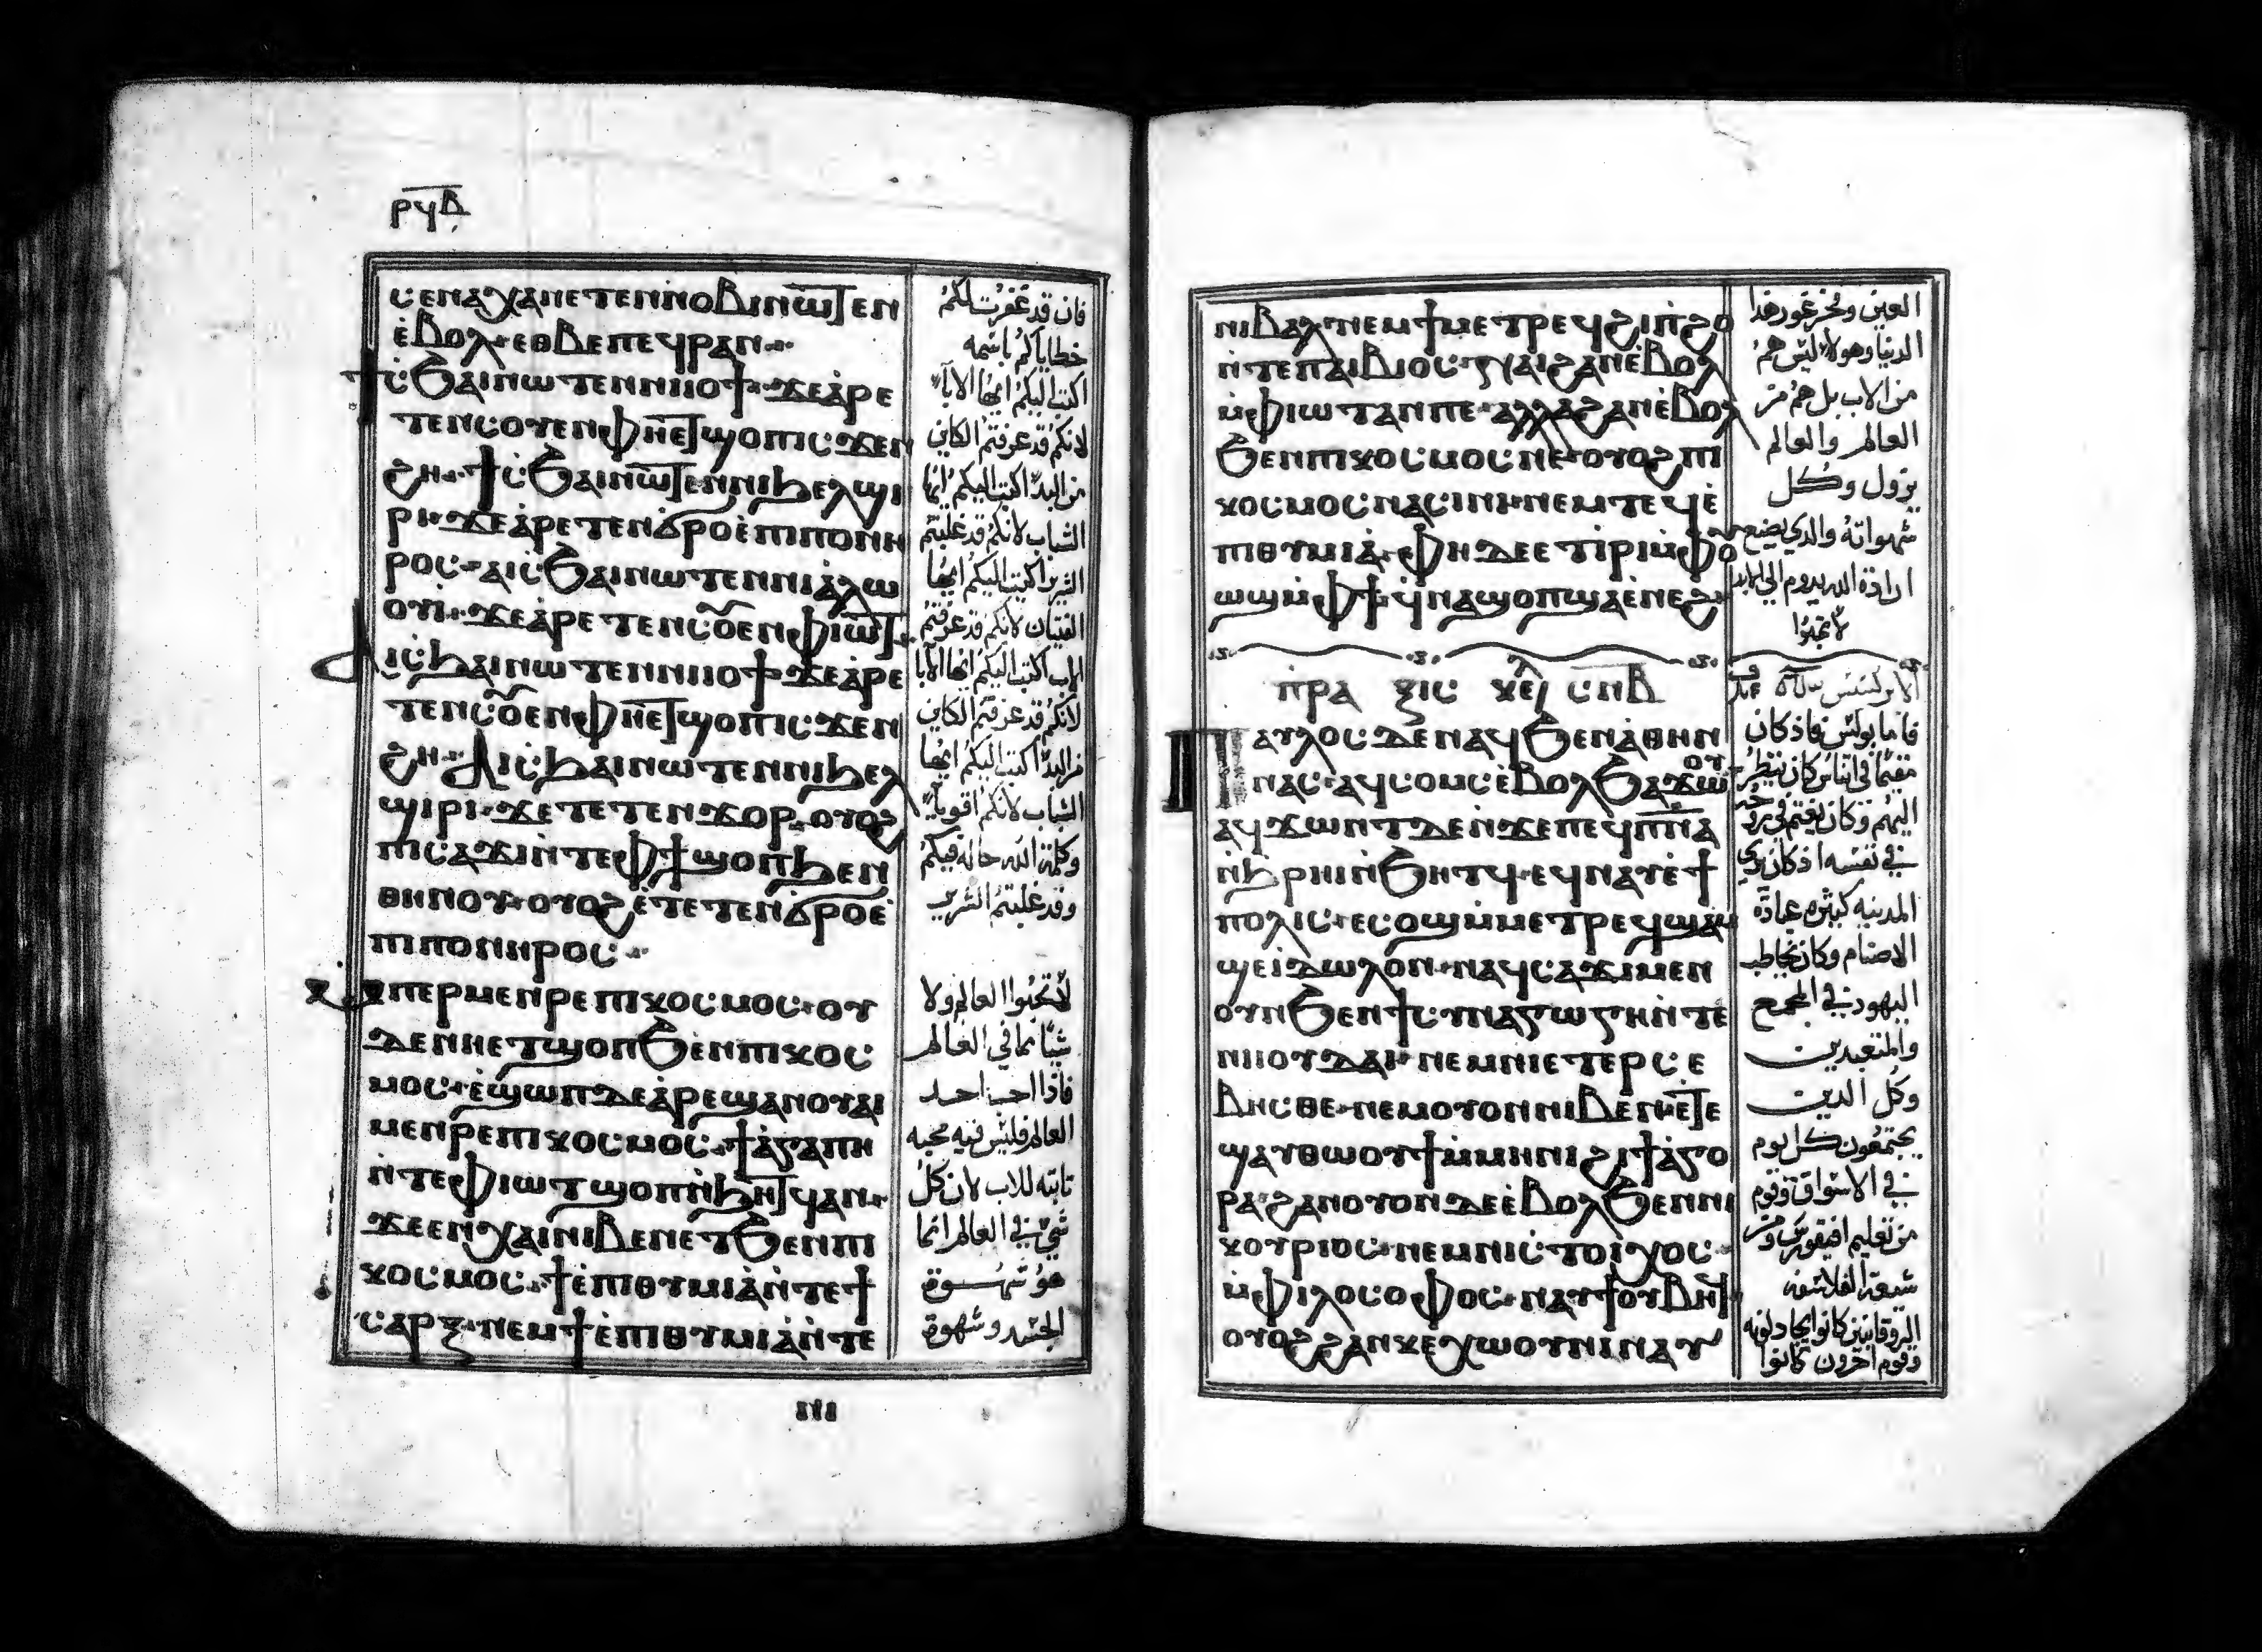 ⲣϥⲃ
ⲥⲉⲛⲁⲭⲁⲛⲉⲧⲉⲛⲛⲟⲃⲓⲛⲱⲧⲉⲛ
ⲉ̀ⲃⲟⲗ·ⲉⲑⲃⲉⲡⲉϥⲣⲁⲛ··
ϯⲥϧⲁⲓⲛⲱⲧⲉⲛⲛⲓⲓⲟϯ·ϫⲉⲁ̀ⲣⲉ
ⲧⲉⲛⲥⲟⲩⲉⲛⲫⲏⲉⲧϣⲟⲡⲓⲥϫⲉⲛ
ϩⲏ··ϯⲥϧⲁⲓⲛⲱⲧⲉⲛⲛⲓϧⲉⲗϣⲓ
ⲣⲓ·ϫⲉⲁ̀ⲣⲉⲧⲉⲛϭⲣⲟⲉ̀ⲡⲓⲡⲟⲛⲏ
ⲣⲟⲥ·ⲁⲓⲥϧⲁⲓⲛⲱⲧⲉⲛⲛⲓⲁ̀ⲗⲱ
ⲟⲩⲓ̀··ϫⲉⲁ̀ⲣⲉⲧⲉⲛⲥⲟⲩⲉⲛⲫⲓⲱⲧ··
ⲁⲓⲥϧⲁⲓⲛⲱⲧⲉⲛⲛⲓⲓⲟϯ·ϫⲉⲁ̀ⲣⲉ
ⲧⲉⲛⲥⲟⲩⲉⲛⲫⲏⲉⲧϣⲟⲡⲓⲥϫⲉⲛ
ϩⲏ··ⲁⲓⲥϧⲁⲓⲛⲱⲧⲉⲛⲛⲓϧⲉⲗ
ϣⲓⲣⲓ·ϫⲉⲧⲉⲧⲉⲛϫⲟⲣ·ⲟⲩⲟϩ
ⲡⲓⲥⲁϫⲓⲛ̀ⲧⲉⲫϯϣⲟⲡϧⲉⲛ
ⲑⲏⲛⲟⲩ·ⲟⲩⲟϩⲉ̀ⲧⲉⲧⲉⲛϭⲣⲟⲉ̀
ⲡⲓⲡⲟⲛⲏⲣⲟⲥ··
ⲙ̀ⲡⲉⲣⲙⲉⲛⲣⲉⲡⲓⲕⲟⲥⲙⲟⲥ·ⲟⲩ
ⲇⲉⲛⲏⲉⲧϣⲟⲡϧⲉⲛⲡⲓⲕⲟⲥ
ⲙⲟⲥ·ⲉ̀ϣⲱⲡⲇⲉⲁ̀ⲣⲉϣⲁⲛⲟⲩⲁⲓ
ⲙⲉⲛⲣⲉⲡⲓⲕⲟⲥⲙⲟⲥ·ϯⲁ̀ⲅⲁⲡⲏ
ⲛ̀ⲧⲉⲫⲓⲱⲧϣⲟⲡⲛ̀ϧⲏⲧϥⲁⲛ··
ϫⲉⲉⲛⲭⲁⲓⲛⲓⲃⲉⲛⲉⲧϧⲉⲛⲡⲓ
ⲕⲟⲥⲙⲟⲥ·ϯⲉ̀ⲡⲓⲑⲩⲙⲓⲁ̀ⲛ̀ⲧⲉϯ
ⲥⲁⲣⲝ·ⲛⲉⲙϯⲉ̀ⲡⲓⲑⲩⲙⲓⲁ̀ⲛ̀ⲧⲉ
فان قد غفرت لكم
خطاياكم باسمه
اكتب اليكم ايها الابآ
لانكم قد عرفتم الكاين
من البدء اكتب اليكم ايها
الشباب لانكم قد غلبتم
الشرير اكتب اليكم ايها
الفتيان لانكم قد عرفتم
الاب اكتب اليكم ايها الابا
لانكم قد عرفتم الكاين
من البدء اكتب اليكم ايها
الشباب لانكم اقويآ
وكلمة الله حاله فيكم
وقد غلبتم الشرير
لا تحبوا العالم ولا
شيا مما في العالم
فاذا احب احد
العالم فليس فيه محبه
ثابته للاب لان كل
شي في العالم انما
هو شهوة
الجسد وشهوة
ⲛⲓⲃⲁⲗ·ⲛⲉⲙϯⲙⲉⲧⲣⲉϥϩⲓⲡ̀ϩⲟ
ⲛ̀ⲧⲉⲡⲁⲓⲃⲓⲟⲥ·ⲛⲁⲓϩⲁⲛⲉ̀ⲃⲟⲗ
ⲙ̀ⲫⲓⲱⲧⲁⲛⲡⲉ·ⲁⲗⲗⲁϩⲁⲛⲉ̀ⲃⲟⲗ
ϧⲉⲛⲡⲓⲕⲟⲥⲙⲟⲥⲛⲉ·ⲟⲩⲟϩⲡⲓ
ⲕⲟⲥⲙⲟⲥⲛⲁⲥⲓⲛⲓ·ⲛⲉⲙⲧⲉϥⲉ̀
ⲡⲓⲑⲩⲙⲓⲁ̀·ⲫⲏⲇⲉⲉⲧⲓ̀ⲣⲓⲙ̀ⲫⲟⲩ
ⲱϣⲙ̀ⲫϯ·ϥ̀ⲛⲁϣⲟⲡϣⲁⲉ̀ⲛⲉϩ·
ⲡⲣⲁⲝⲓⲥ ⲕⲉⲫ ⲥⲛⲃ
ⲡⲁⲩⲗⲟⲥⲇⲉⲛⲁϥϧⲉⲛⲁ̀ⲑⲏⲛ
ⲛⲁⲥ·ⲁϥⲥⲟⲙⲥⲉ̀ⲃⲟⲗϧⲁϫⲱⲟⲩ
ⲁϥϫⲱⲛⲧⲇⲉⲛ̀ϫⲉⲡⲉϥⲡⲛⲁ
ⲛ̀ϧⲣⲏⲓⲛ̀ϧⲏⲧϥ·ⲉϥⲛⲁⲩⲉ̀ϯ
ⲡⲟⲗⲓⲥ·ⲉⲥⲟϣⲙ̀ⲙⲉⲧⲣⲉϥϣⲁⲙ
ϣⲉⲓ̀ⲇⲱⲗⲟⲛ·ⲛⲁϥⲥⲁϫⲓⲙⲉⲛ
ⲟⲩⲛϧⲉⲛϯⲥⲩⲛⲁⲅⲱⲅⲏⲛ̀ⲧⲉ
ⲛⲓⲓⲟⲩⲇⲁⲓ·ⲛⲉⲙⲛⲓⲉⲧⲉⲣⲥⲉ
ⲃⲏⲥⲑⲉ·ⲛⲉⲙⲟⲩⲟⲛⲛⲓⲃⲉⲛⲉⲧⲉ
ϣⲁⲩⲑⲱⲟⲩϯⲙ̀ⲙⲏⲛⲓϩⲓϯⲁ̀ⲅⲟ
ⲣⲁ·ϩⲁⲛⲟⲩⲟⲛⲇⲉⲉ̀ⲃⲟⲗϧⲉⲛⲛⲓ
ⲕⲟⲩⲣⲓⲟⲥ·ⲛⲉⲙⲛⲓⲥⲧⲟⲓ̀ⲭⲟⲥ·
ⲙ̀ⲫⲓⲗⲟⲥⲟⲫⲟⲥ·ⲛⲁⲩϯⲟⲩⲃⲏϥ
ⲟⲩⲟϩϩⲁⲛⲕⲉⲭⲱⲟⲩⲛⲓⲛⲁⲩ
العين وفخر غرور هذا
الدنيا وهولا ليس هم
من الاب بل هم من
العالم والعالم
يزول وكل
شهواته والذي يصنع
ارادة الله يدوم الي الابد
لا تحبوا
الابركسيس
فاما بولس فاذ كان
مقيما في اثناس كان ينتظر
في نفسه اذ كان يري
المدينه كثيره عبادة
الاصنام وكان يخاطب
اليهود في المجمع
والمتعبدين
وكل الدين
يجتمعون كل يوم
في الاسواق وقوم
من تعليم افيقورس ومن
شيعة الفلاسفه
الروقانيين كانوا يجادلونه
وقوم اخرون كانوا